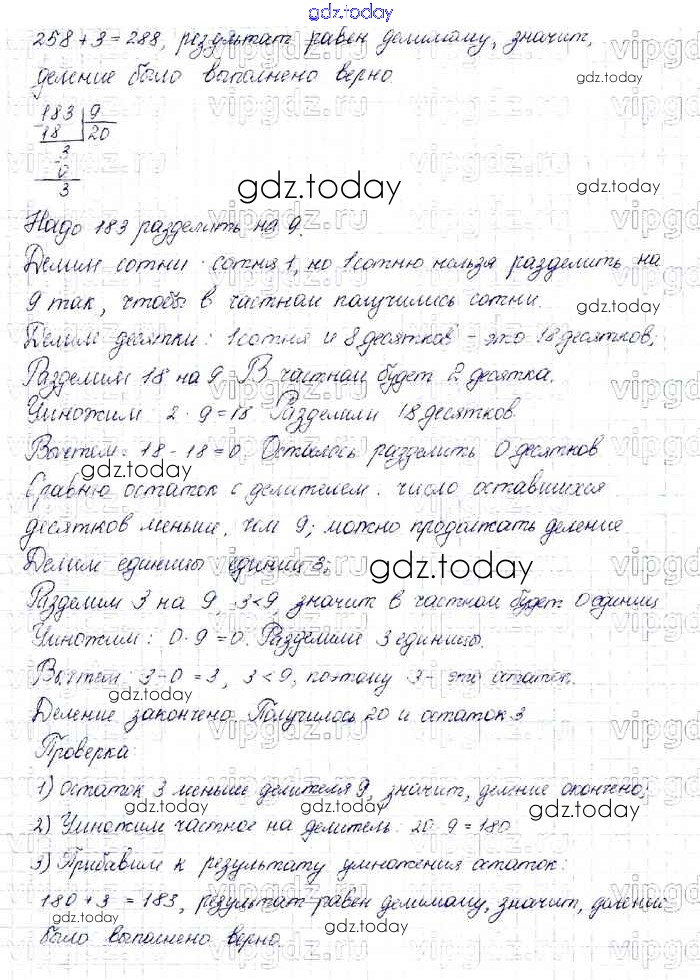 gdz.today
258+3=288, результат равен делимому, значит,
деление было выполнено верно
gdz.today
183 9
18 20
3
0
3
gdz.today
gdz.today
Надо 183 разделить на 9.
Делим сотни · сотня 1, но 1 сотню нельзя разделить на
9 так, чтобы в частном получились сотни.
Делим десятки: 1 сотня и 8 десятков - это 18 десятков;
Разделим 18 на 9 В частном будет 2 десятка.
Умножим 2 · 9 = 18 Разделили 18 десятков.
Вычтем: 18 - 18 = 0. Осталось разделить 0 десятков
gdz.today
Сравню остаток с делителем: число оставшихся
десятков меньше, чем 9; можно продолжать деление.
Делим единицы единиц 3;
gdz.today
Разделим 3 на 9, 3<9, значит в частном будет 0 единиц
Умножим: 0·9=0. Разделили 3 единицы.
Вычтем: 3-0=3, 3<9, поэтому 3- это остаток.
gdz.today
Деление закончено. Получилось 20 и остаток 3
Проверка
1) Остаток 3 меньше делителя 9, значит, деление окончено;
gdz.today
2) Умножим частное на делитель: 20·9=180
3) Прибавим к результату умножения остаток:
180+3=183, результат равен делимому, значит, деление
gdz.today
было выполнено верно.
gdz.today
vipgdz.ru